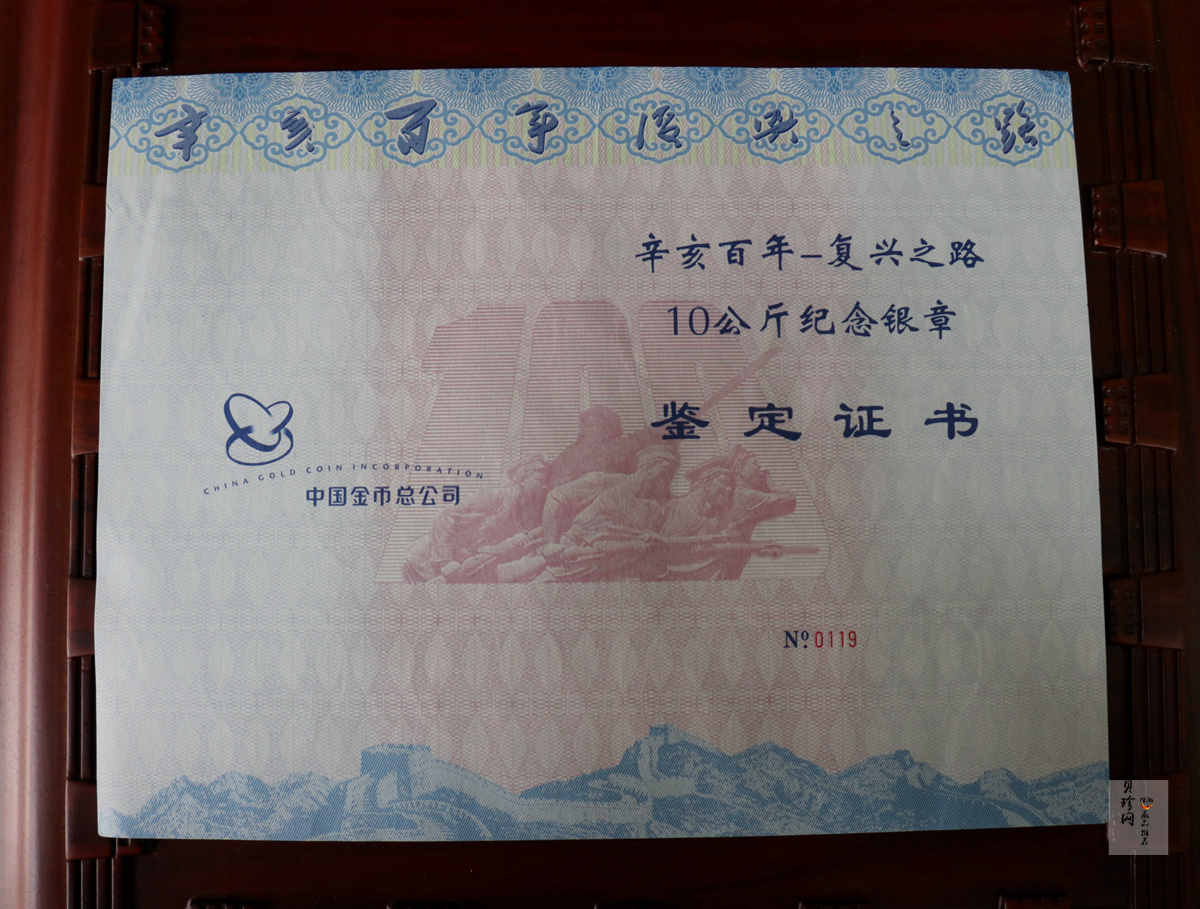 辛亥百年復興之路
辛亥百年–复兴之路
10公斤纪念银章
鉴定证书
CHINA GOLD COIN INCORPORATION
中国金币总公司
100
Nº.0119
贝珍网